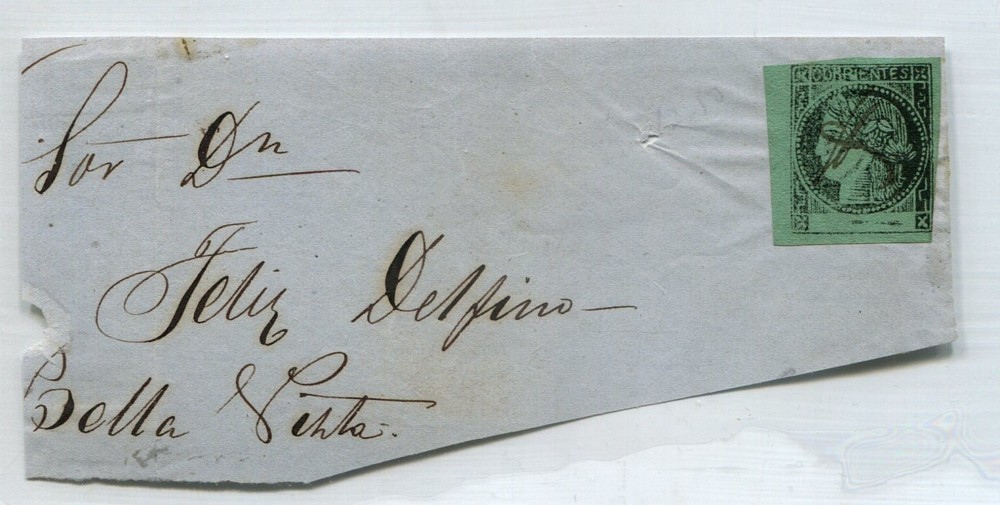 Sor Dn
CORRIENTES
Feliz Delfino
Bella Vista.